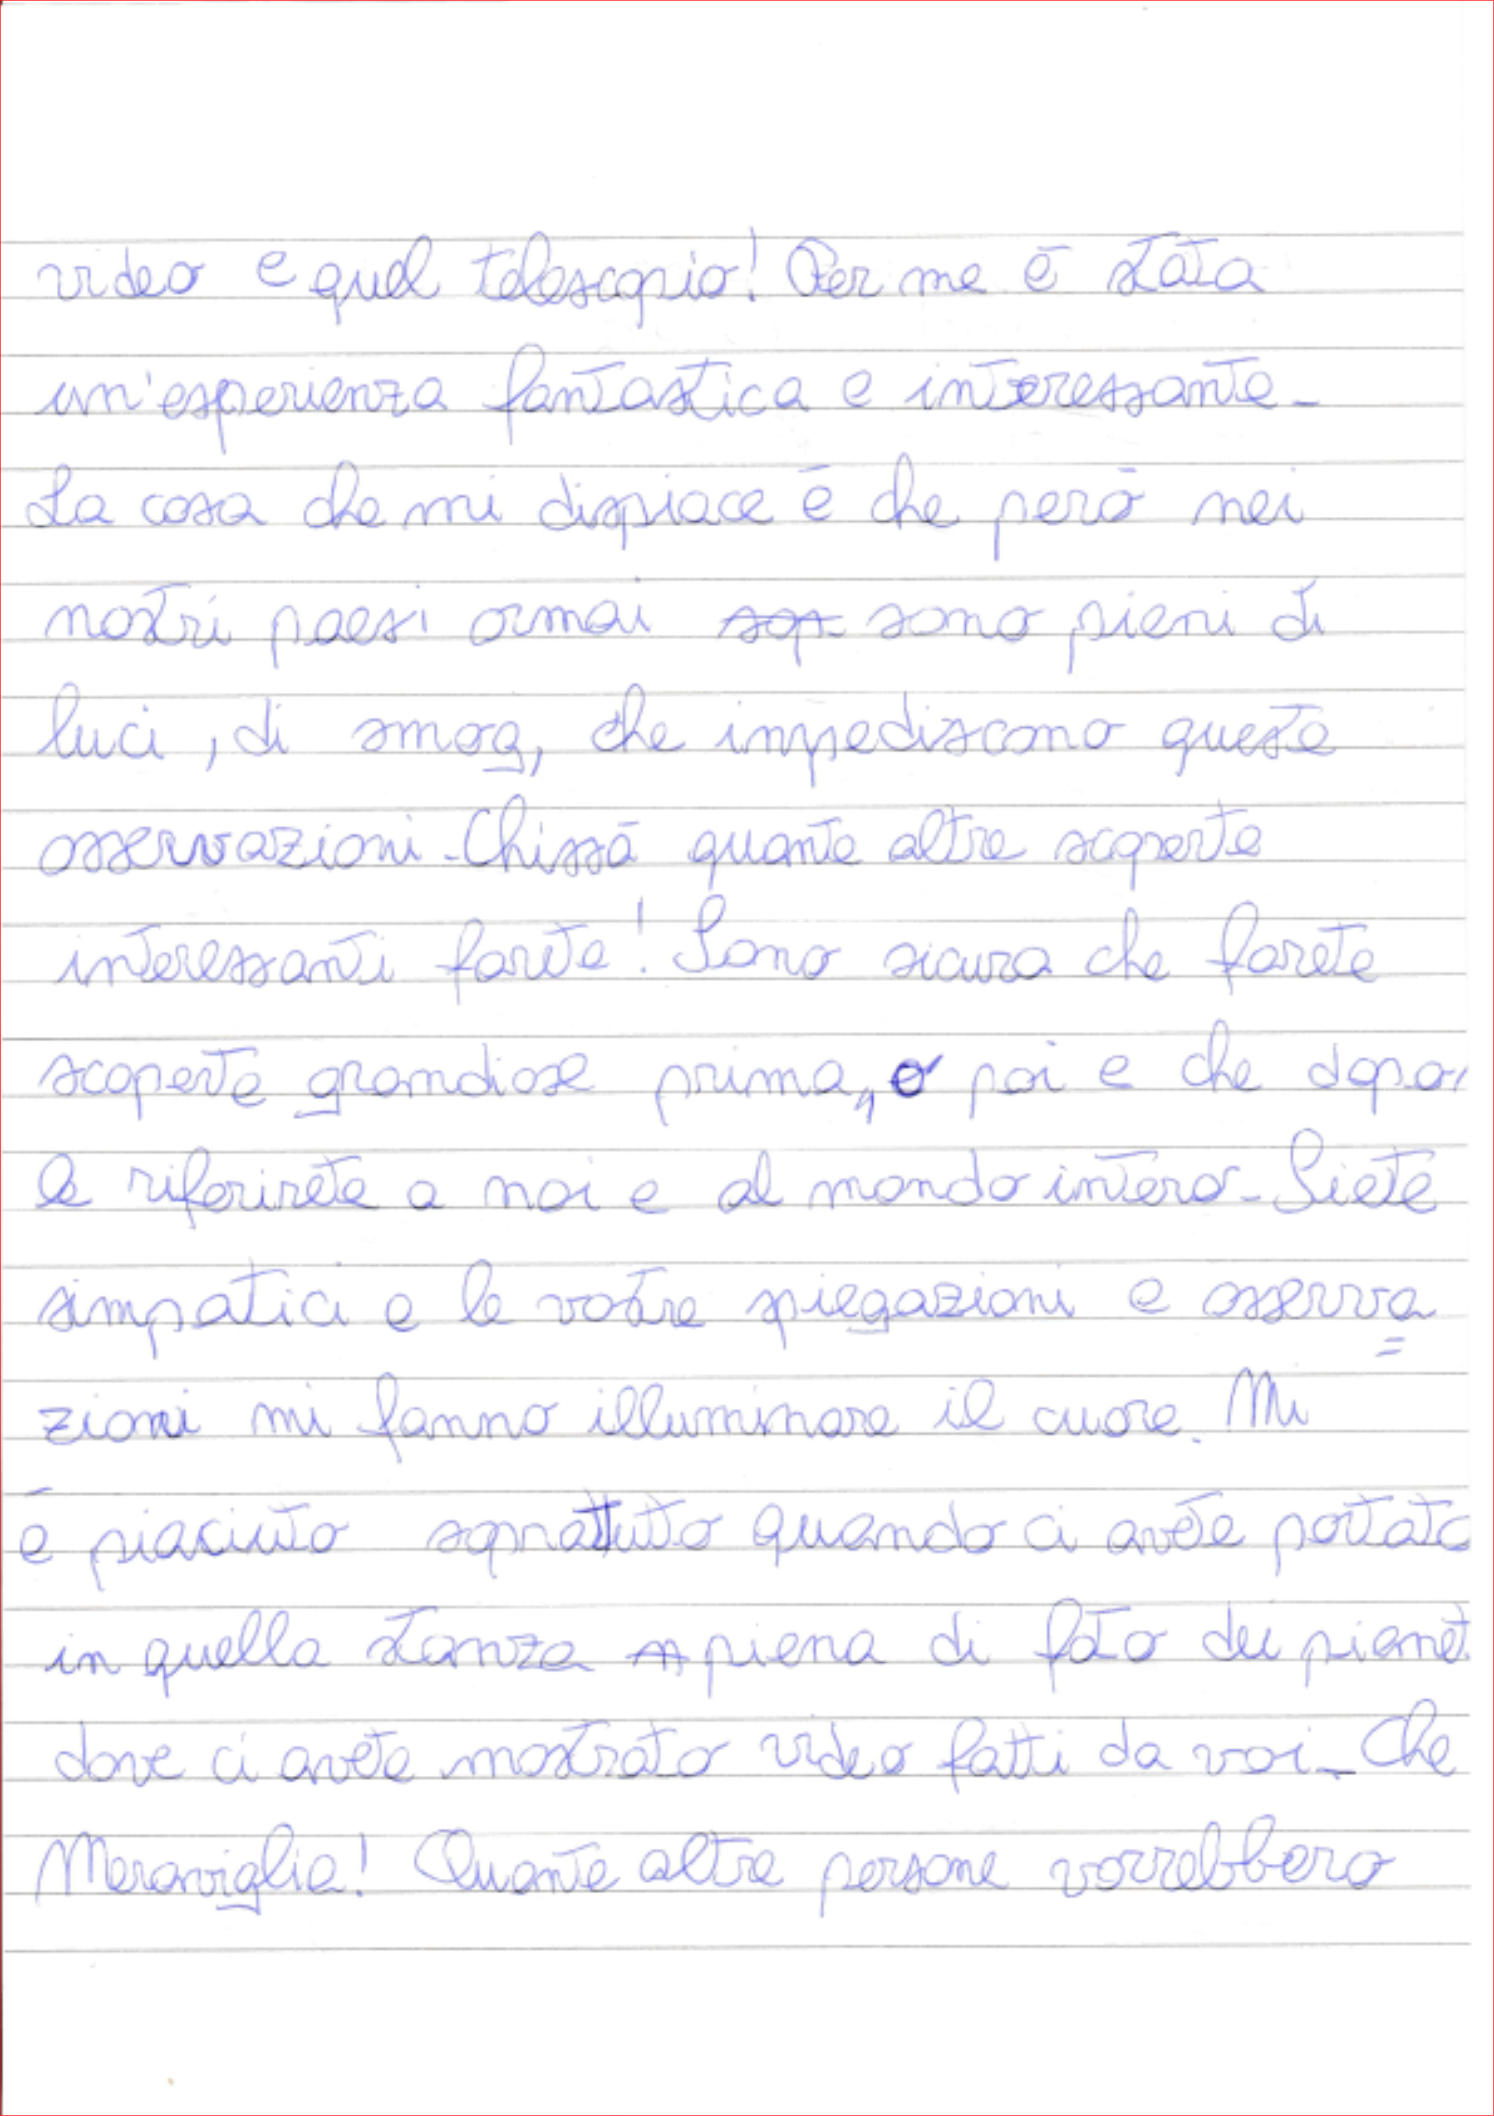 video e quel telescopio! Per me è stata
un'esperienza fantastica e interessante.
La cosa che mi dispiace è che però nei
nostri paesi ormai sono pieni di
luci, di smog, che impediscono queste
osservazioni. Chissà quante altre scoperte
interessanti farete! Sono sicura che farete
scoperte grandiose prima, o poi e che dopo
le riferirete a noi e al mondo intero. Siete
simpatici e le vostre spiegazioni e osserva=
zioni mi fanno illuminare il cuore. Mi
è piaciuto soprattutto quando ci avete portato
in quella stanza piena di foto dei pianet
dove ci avete mostrato video fatti da voi. Che
Meraviglia! Quante altre persone vorrebbero